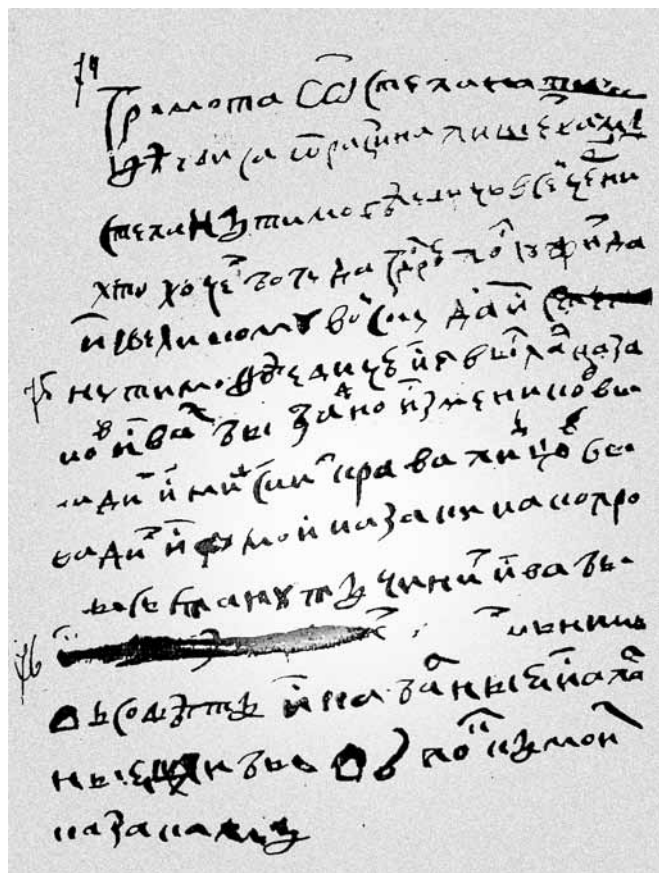 74
Грамота ѿ Степана Тимо
ѳѣвича ѿ Разина пишет вам
Степан Тимоѳѣевичь всей черни
хто хочет богу да гсдрю послужит да
и великому войску да и Степа
75 ну Тимоѳѣевичю и я выслал каза
ков и вам бы заодно изменников вы
водит и мирских кравапивцов вы
вадит и мои казаки како про
мысь станут чинит и вам бы
76
в совет и кабалныя и апал
ныя шли бы в полк к моим
казакам